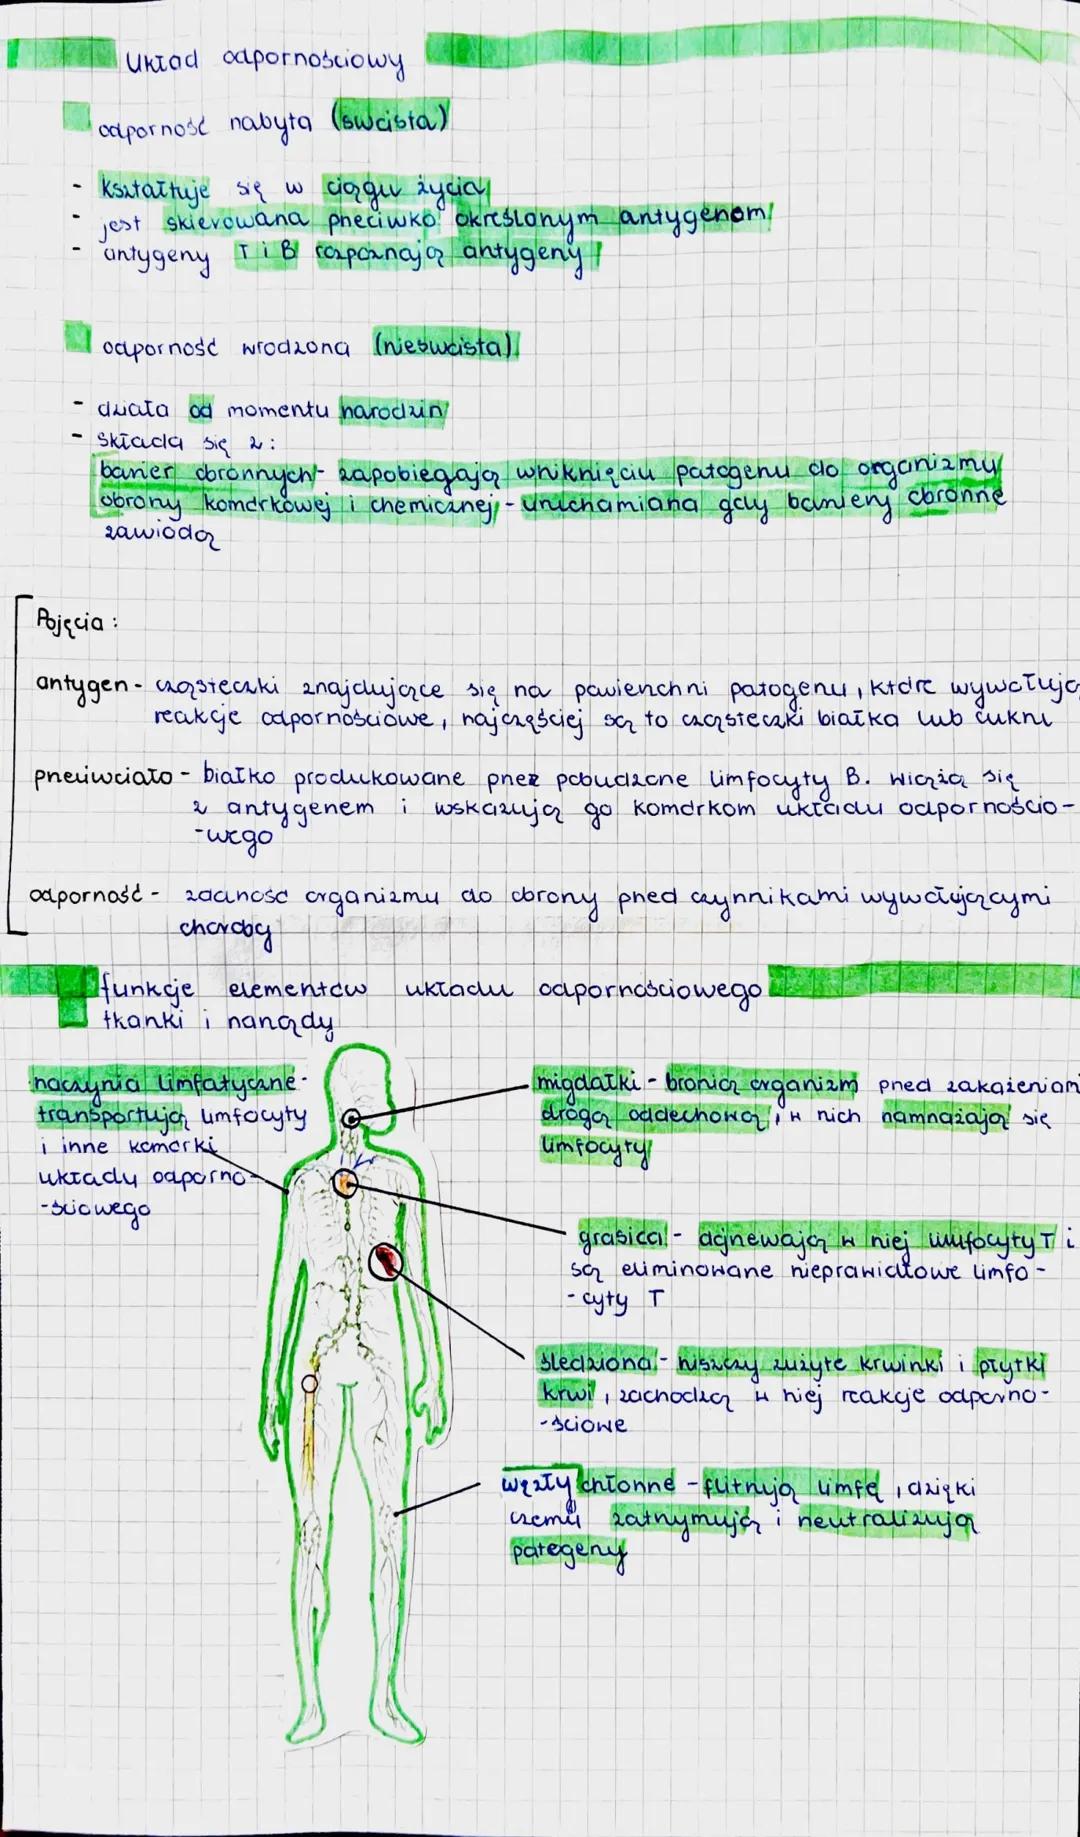 Układ odpornościowy
odporność nabyta (swoista)
- kształtuje się w ciągu życia
- jest skierowana przeciwko określonym antygenom
- antygeny T i B rozpoznają antygeny
odporność wrodzona (nieswoista)
- działa od momentu narodzin
- składa się z:
barier obronnych - zapobiegają wniknięciu patogenu do organizmy
obrony komórkowej i chemicznej - uruchamiana gdy bariery obronne
zawiodą
Pojęcia:
antygen - cząsteczki znajdujące się na powierzchni patogenu, które wywołują
reakcje odpornościowe, najczęściej są to cząsteczki białka lub cukru
przeciwciało - białko produkowane przez pobudzone limfocyty B. wiążą się
z antygenem i wskazują go komórkom układu odpornościo-
-wego
odporność - zdolność organizmu do obrony przed czynnikami wywołującymi
choroby
funkcje elementów układu odpornościowego
tkanki i narządy
naczynia limfatyczne -
transportują limfocyty
i inne komórki
układy odporno-
-ściowego
migdałki - bronią organizm przed zakażeniami
drogą oddechową, w nich namnażają się
limfocyty
grasica - dojrzewają w niej limfocyty T i
są eliminowane nieprawidłowe limfo-
-cyty T
śledziona - niszczy zużyte krwinki i płytki
krwi, zachodzą w niej reakcje odporno-
-ściowe
węzły chłonne - filtrują limfę, dzięki
czemu zatrzymują i neutralizują
patogeny